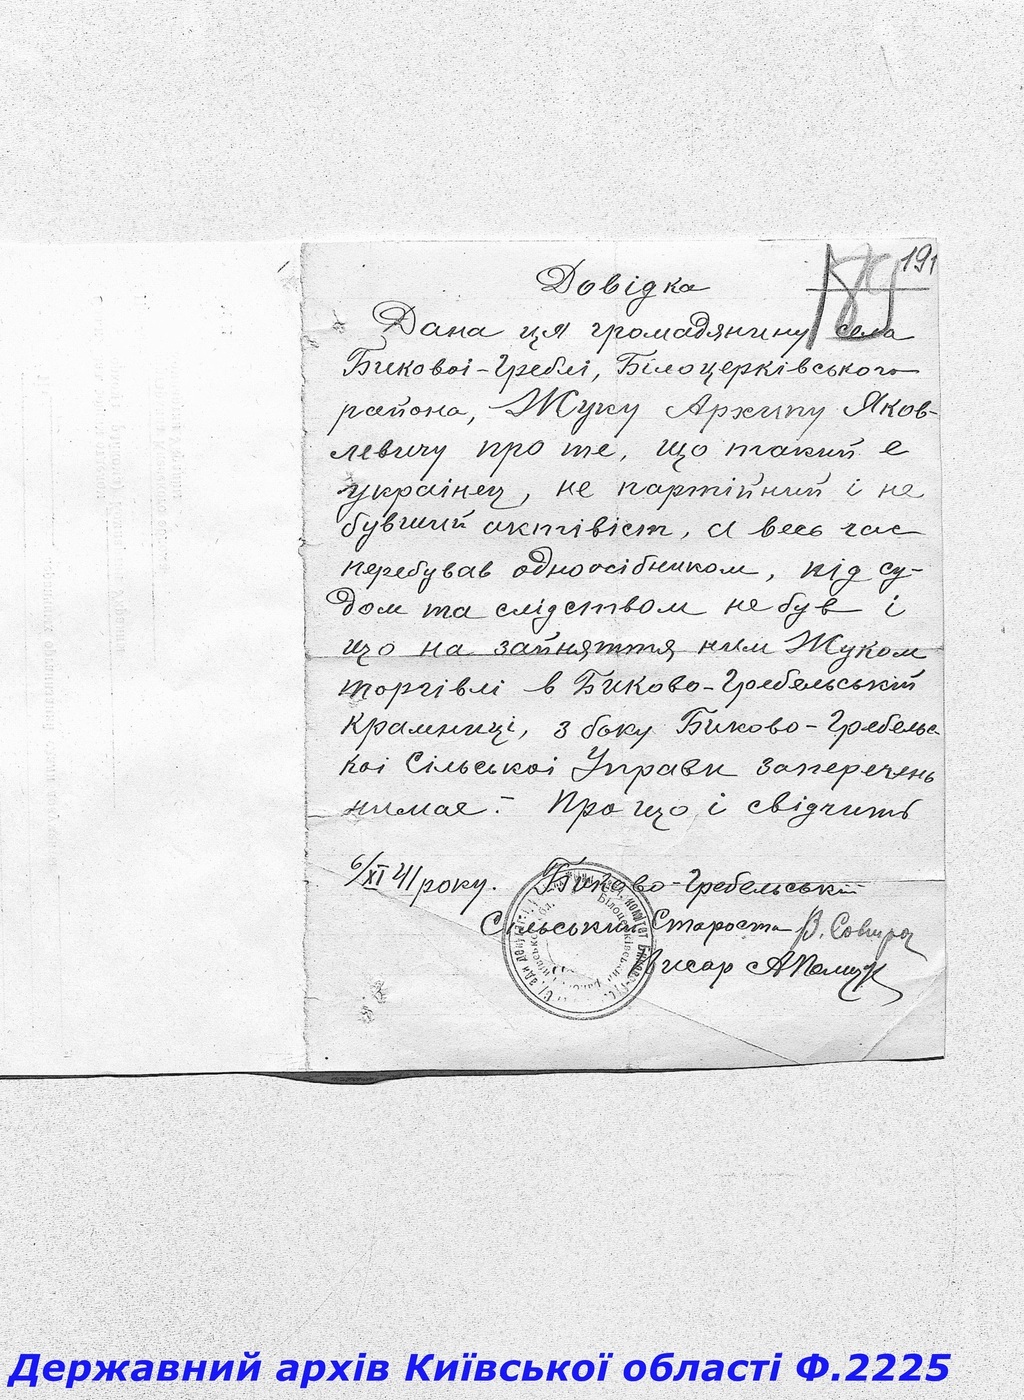 191
Довідка
Дана ця громадянину села
Бикової-Греблі, Білоцерківського
района, Жуку Архипу Яков-
левичу про те, що такий є
українец, не партійний і не
бувший активіст, а весь час
перебував одноосібником, під су-
дом та слідством не був і
що на зайняття ним Жуком
торгівлі в Биково-Гребельській
крамниці, з боку Биково-Гребельсь
кої Сільської Управи заперечень
нимає. Про що і свідчить
6/XI 41 року. Биково-Гребельський
Сільський Староста
Писар
Державний архів Київської області Ф.2225